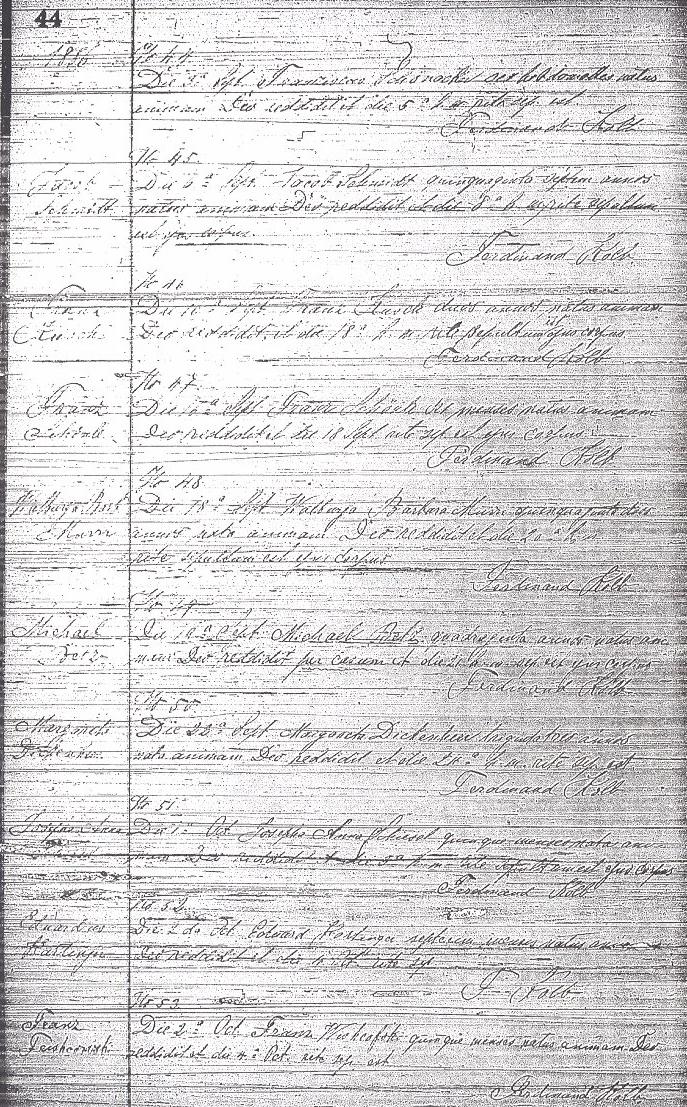 44
1856 No 44
Die 3a Sept. Franziscus hebdomades natus
animam Deo reddidit et die 5a h. m. rite sep. est
Ferdinand Kolb
No 45.
Jacob Die 6a Sept. Jacob Schmidt quinquaginta septem annos
Schmidt natus animam Deo reddidit et die 8a h. m. rite sepultum
est ejus corpus.
Ferdinand Kolb
No 46
Franz Die Sept. Franz duos annos natus animam
Deo reddidit et die 18a h. m. rite sepultum ejus corpus
Ferdinand Kolb
No 47
Franz Die Sept Franz menses natus animam
Deo reddidit et die 18 Sept rite sep. est ejus corpus
Ferdinand Kolb
No 48
Walburga Barb Die 18a Sept. Walburga Barbara quinquaginta duos
annos nata animam Deo reddidit et die 20a h. m
rite sepultum est ejus corpus
Ferdinand Kolb
No 49
Michael Die 19a Sept. Michael quadraginta annos natus ani
mam Deo reddidit per casum et die 21 h. m. sep. est ejus corpus
Ferdinand Kolb
No 50
Margareta Die 22a Sept. Margareta annos
nata animam Deo reddidit et die 24a h. m. rite sep. est
Ferdinand Kolb
No 51.
Josepha Anna Die 1a Oct. Josepha Anna quinque menses nata ani
mam Deo reddidit et die 3a h. m. rite sepultum est ejus corpus
Ferdinand Kolb
No 52
Eduardus Die 2da Oct. Eduard Hartinger septem menses natus
Hartinger Deo reddidit et die rite sep.
F. Kolb
No 53
Franz Die 2a Oct. Franz quinque menses natus animam Deo
reddidit et die 4a Oct. rite sep. est
Ferdinand Kolb